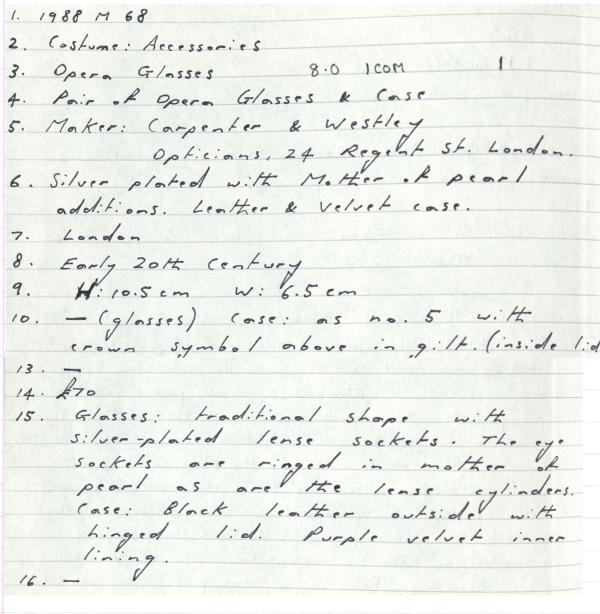 1. 1988 M 68
2. Costume: Accessories
3. Opera Glasses 8.0 ICOM 1
4. Pair of Opera Glasses & Case
5. Maker: Carpenter & Westley
Opticians, 24 Regent St. London.
6. Silver plated with Mother of pearl
additions. Leather & Velvet case.
7. London
8. Early 20th Century
9. H: 10.5 cm W: 6.5 cm
10. — (glasses) Case: as no. 5 with
crown symbol above in gilt. (inside lid
13. —
14. £70
15. Glasses: traditional shape with
silver-plated lense sockets. The eye
sockets are ringed in mother of
pearl as are the lense cylinders.
Case: Black leather outside with
hinged lid. Purple velvet inner
lining.
16. —